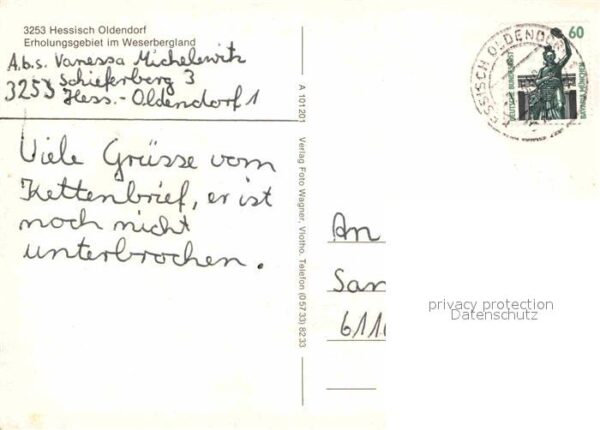 3253 Hessisch Oldendorf
Erholungsgebiet im Weserbergland
A.b.s. Vanessa Michelewitz
Schieferberg 3
3253 Hess.-Oldendorf 1
Viele Grüsse vom
Kettenbrief, er ist
noch nicht
unterbrochen.
A 101201 Verlag Foto Wagner, Vlotho. Telefon (05733) 8233
HESSISCH OLDENDORF
60
DEUTSCHE BUNDESPOST
BAVARIA MÜNCHEN
An
San
6110
privacy protection
Datenschutz